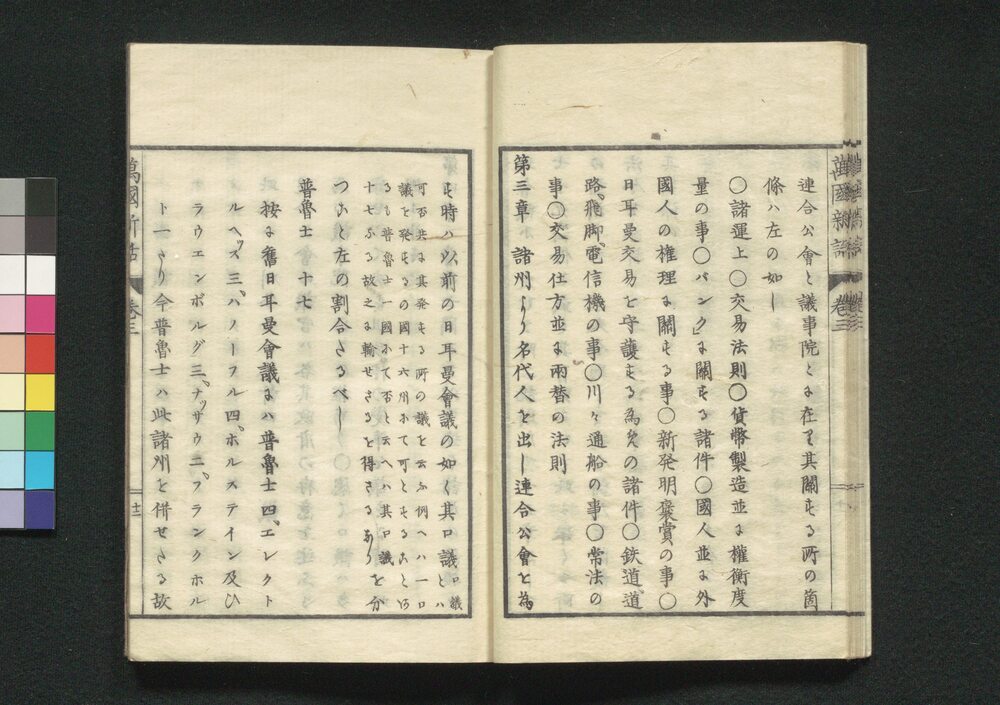 連合公會と議事院とに在て其關する所の箇
條ハ左の如し
〇諸運上〇交易法則〇貨幣製造並に權衡度
量の事〇バンクに關する諸件〇國人並に外
國人の権理に關する事〇新発明褒賞の事〇
日耳曼交易を守護する為めの諸件〇鉄道道
路飛脚電信機の事〇川々通船の事〇常法の
事〇交易仕方並に両替の法則
第三章 諸州より名代人を出し連合公會を為
す時ハ以前の日耳曼會議の如く其口議口議とハ
可否共に其発する所の議を云ふ例へハ一口
議を発するの國十六州にて可とすること
るも普魯士一國にて否と云へハ其口議
十七なる故之に輸せさるを得さるあり を分
つこと左の割合たるべし
普魯士 十七
按に舊日耳曼會議にハ普魯士四エレクト
ルヘッス三ハノーフル四ホルステイン及ひ
ラウエンボルグ三ナッサウ二フランクホル
ト一なり今普魯士ハ此諸州を併せたる故
萬國新話 巻三
萬國新話 巻三 十二